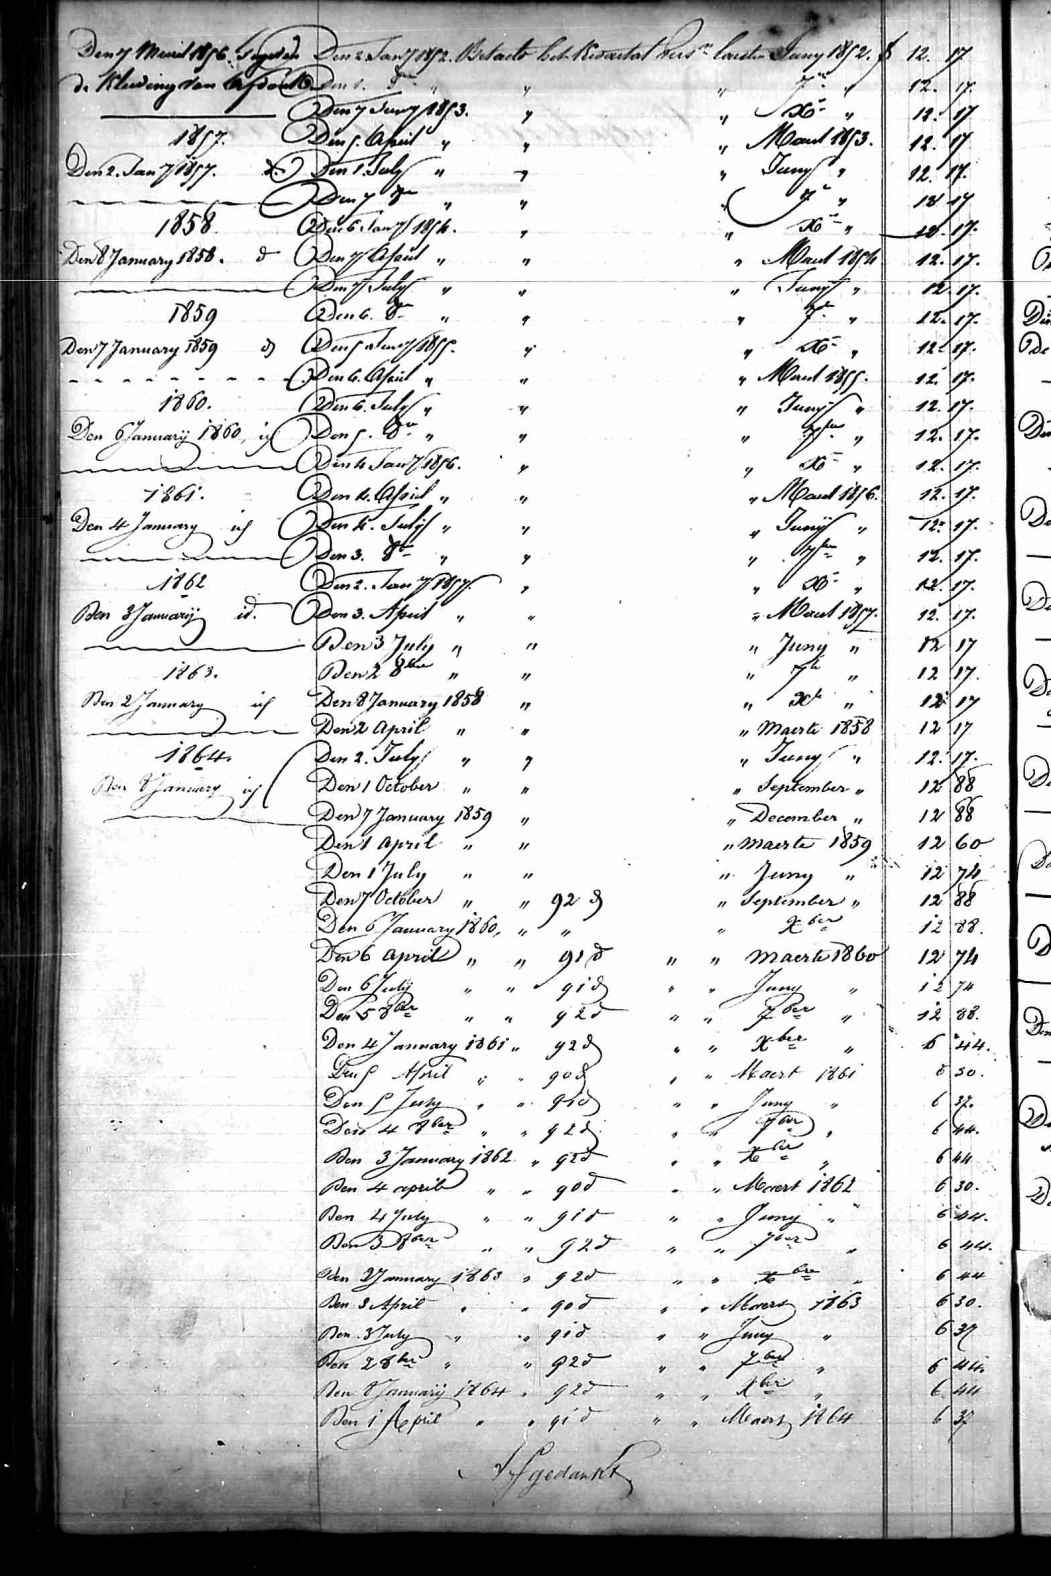 Den 7 Meert 1856. Den 2 Jan'y 1852. Betaelt het Kwartael laeste Juny 1852. f 12. 17
de Kleeding van Den 1. 8re " " " 7re " 12. 17.
Den 7 Jan'y 1853. " " X- " 12. 17
1857. Den 5. April " " " Maert 1853. 12. 17
Den 2. Jan'y 1857. Den 1. July " " " Juny " 12. 17.
Den 7 8re " " " 7re " 12 17
1858. Den 6 Jan'y 1854. " " X- " 12. 17.
Den 8 January 1858. d Den 7 April " " " Maert 1854 12. 17.
Den 7 July " " " Juny " 12 17.
1859 Den 6. 8re " " " 7re " 12. 17.
Den 7 January 1859 d Den 5 Jan'y 1855. " " X- " 12. 17.
Den 6. April " " " Maert 1855. 12. 17.
1860. Den 6. July " " " Juny " 12. 17.
Den 6 January 1860, id Den 5. 8re " " " 7re " 12. 17.
Den 4 Jan'y 1856. " " X- " 12. 17.
1861. Den 4. April " " " Maert 1856. 12. 17.
Den 4 January id Den 4. July " " " Juny " 12. 17.
Den 3. 8re " " " 7re " 12. 17.
1862 Den 2. Jan'y 1857. " " X- " 12. 17.
Den 3 January id. Den 3. April " " " Maert 1857. 12. 17.
Den 3 July " " " Juny " 12 17
1863. Den 2 8bre " " " 7re " 12 17.
Den 2 January id Den 8 January 1858 " " Xr " 12 17
Den 2 April " " " Maerte 1858 12 17
1864. Den 2. July " " " Juny " 12. 17.
Den 8 January id Den 1 October " " " September " 12 88
Den 7 January 1859 " " December " 12 88
Den 1 April " " " Maerte 1859 12 60
Den 1 July " " " Juny " 12 74
Den 7 October " " 92 d " September " 12 88
Den 6 January 1860, " " " Xber 12 88.
Den 6 April " " 91 d " " Maerte 1860 12 74
Den 6 July " " 91 d " " Juny " 12 74
Den 5 8ber " " 92 d " " 7ber " 12 88.
Den 4 January 1861 " 92 d " " Xber " 6 44.
Den 5 April " " 90 d " " Maert 1861 6 30.
Den 5 July " " 91 d " " Juny " 6 37.
Den 4 8ber " " 92 d " " 7ber " 6 44.
Den 3 January 1862 " 92 d " " Xber " 6 44
Den 4 april " " 90 d " " Maert 1862 6 30.
Den 4 July " " 91 d " " Juny " 6 44.
Den 3 8ber " " 92 d " " 7ber " 6 44.
Den 2 January 1863 " 92 d " " Xbre " 6 44
Den 3 April " " 90 d " " Maert 1863 6 30.
Den 3 July " " 91 d " " Juny " 6 37
Den 2 8ber " " 92 d " " 7ber " 6 44.
Den 8 January 1864 " 92 d " " Xber " 6 44
Den 1 April " " 91 d " " Maert 1864 6 37
Afgedankt